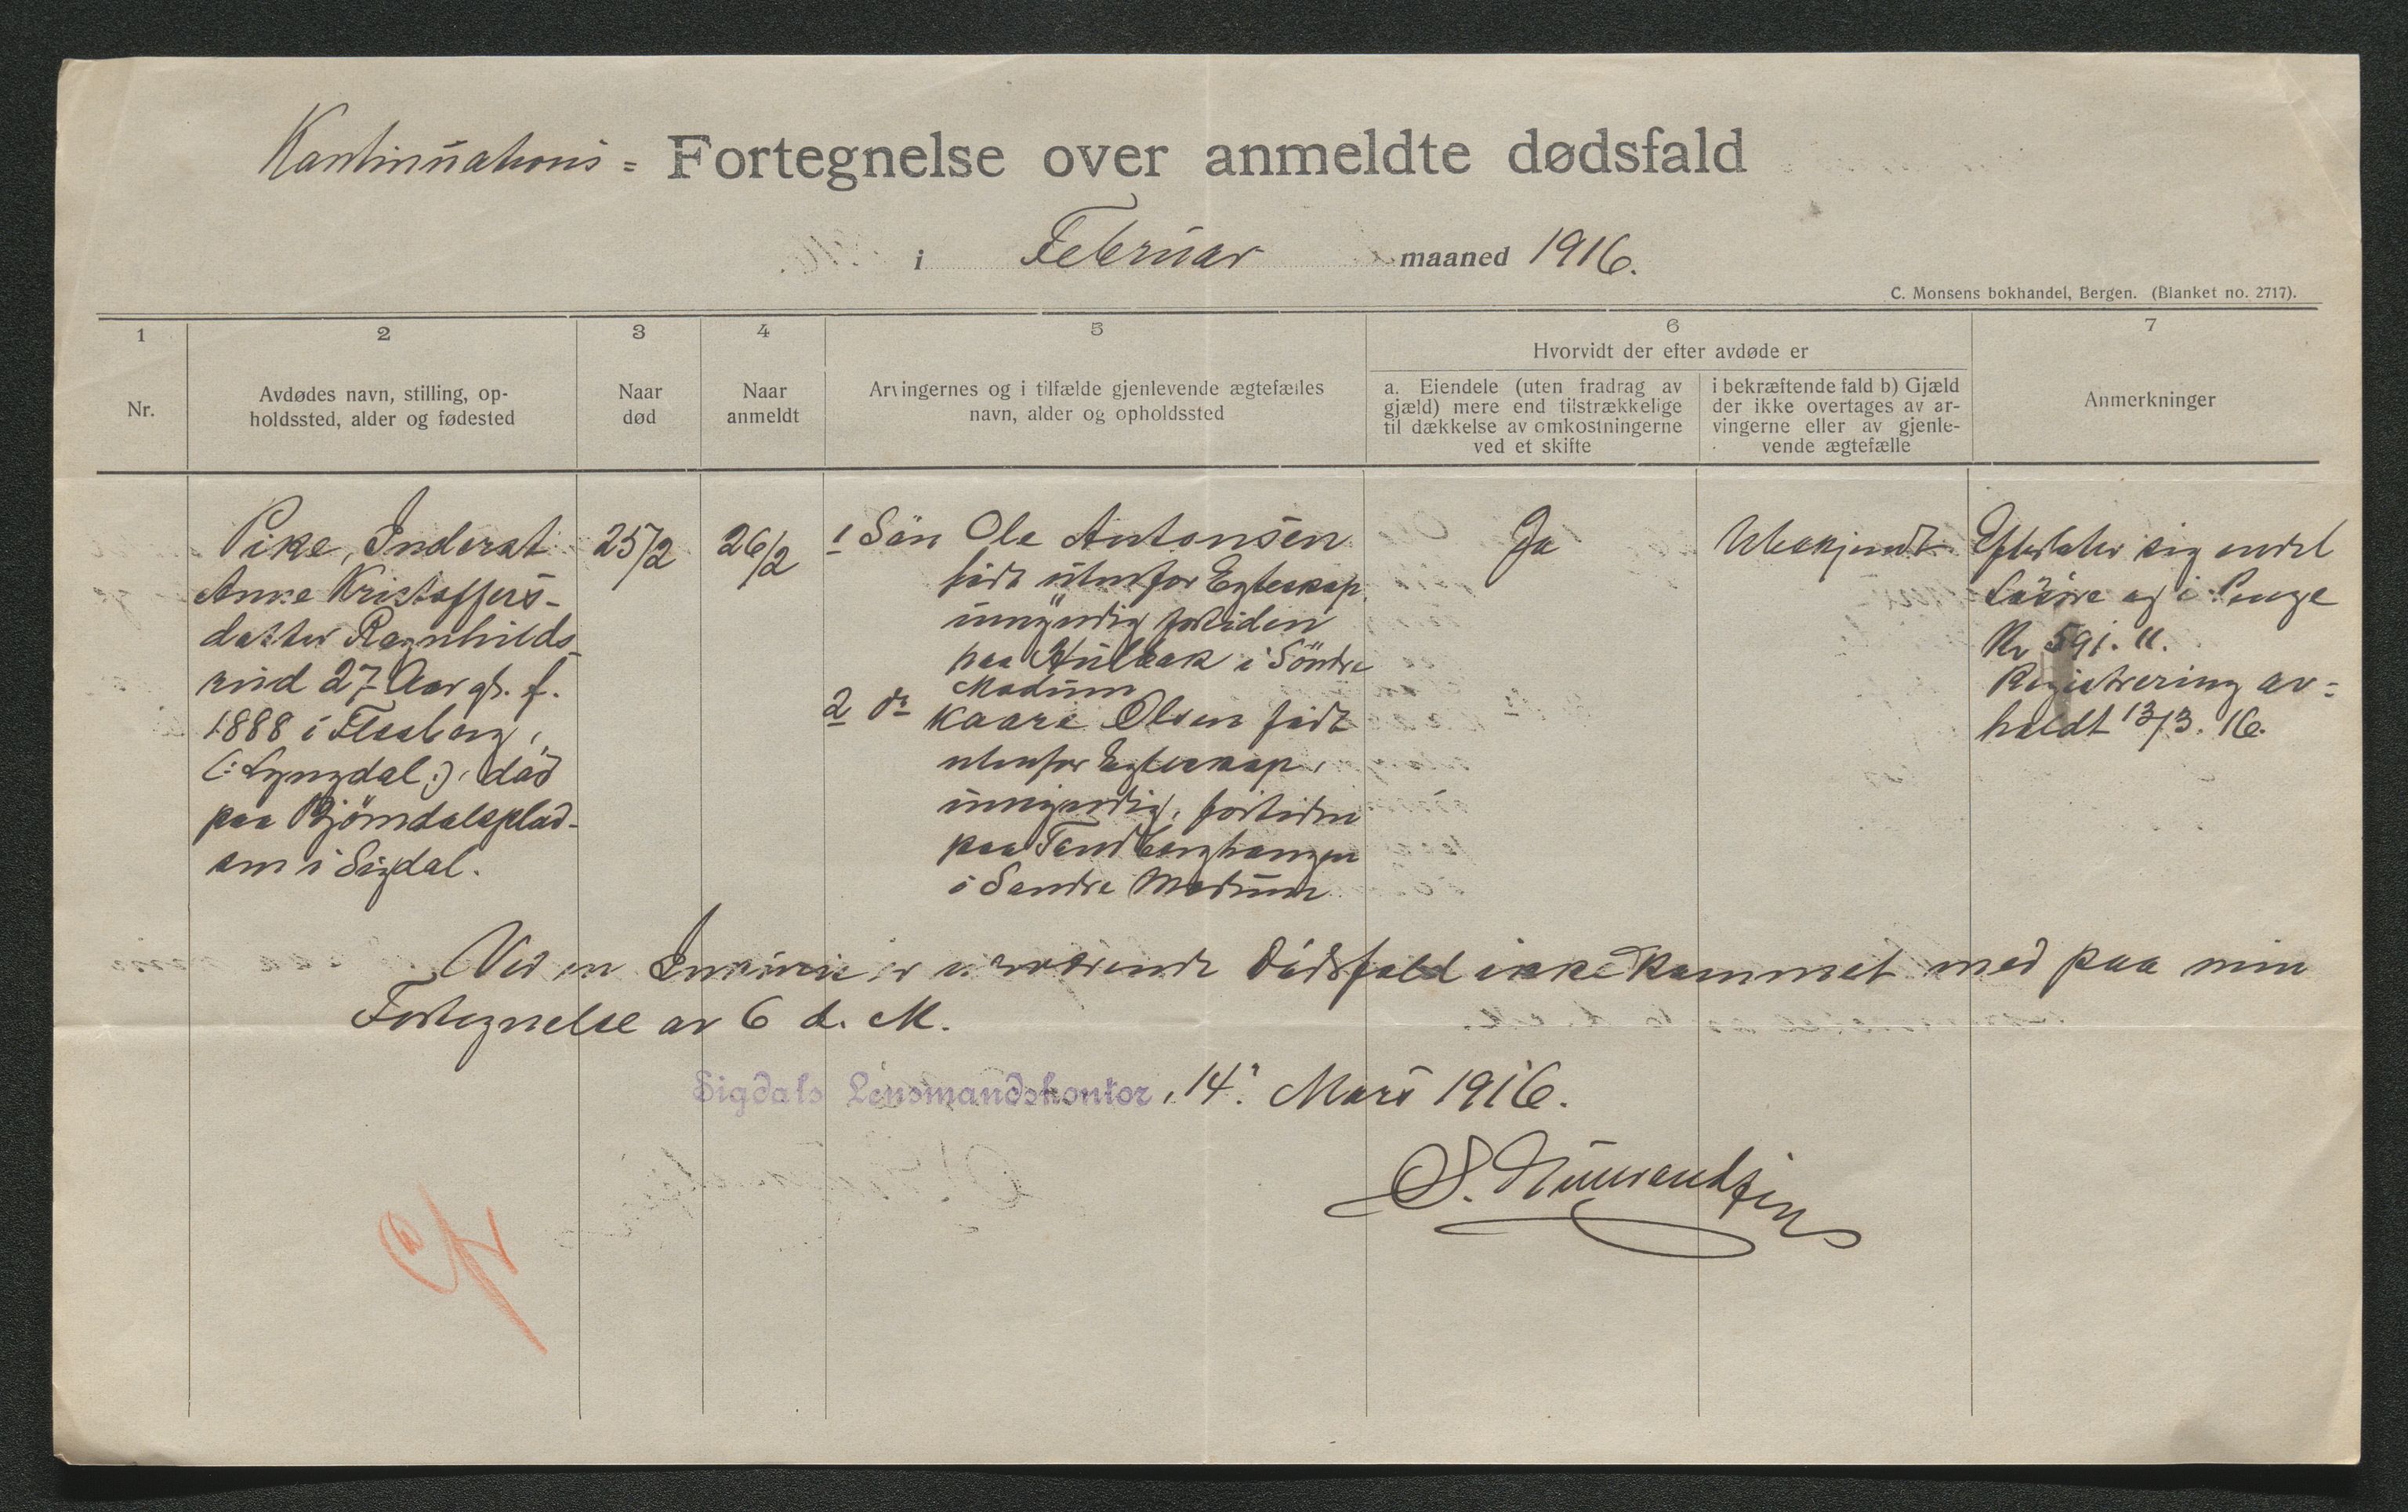 Kontinuations = Fortegnelse over anmeldte dødsfald
i Februar maaned 1916.
C. Monsens bokhandel, Bergen. (Blanket no. 2717).
1
2
3
4
5
6
7
Nr.
Avdødes navn, stilling, op-
holdssted, alder og fødested
Naar
død
Naar
anmeldt
Arvingernes og i tilfælde gjenlevende ægtefælles
navn, alder og opholdssted
Hvorvidt der efter avdøde er
a. Eiendele (uten fradrag av
gjæld) mere end tilstrækkelige
til dækkelse av omkostningerne
ved et skifte
i bekræftende fald b) Gjæld
der ikke overtages av ar-
vingerne eller av gjenle-
vende ægtefælle
Anmerkninger
Pike, Inderst
Anne Kristoffers-
datter Ragnhilds-
rud 27 Aar gl. f.
1888 i Flesberg,
(: Lyngdal :), død
paa Bjørndalsplad-
sen i Sigdal.
25/2
26/2
1 Søn Ole Antonsen
født utenfor Egteskap,
umyndig fortiden
paa Hulbak i Søndre
Modum
2 do Kaare Olsen født
utenfor Egteskap,
umyndig, fortiden
paa Tandberghaugen
i Søndre Modum
Ja
Ubekjendt
Efterlater sig endel
Løsøre og i Penge
Kr 591. 11.
Registrering av-
holdt 13/3. 16.
Ved en Inkurie er nærværende Dødsfald ikke kommet med paa min
Fortegnelse av 6 d. M.
Sigdals Lensmandskontor, 14. Mars 1916.